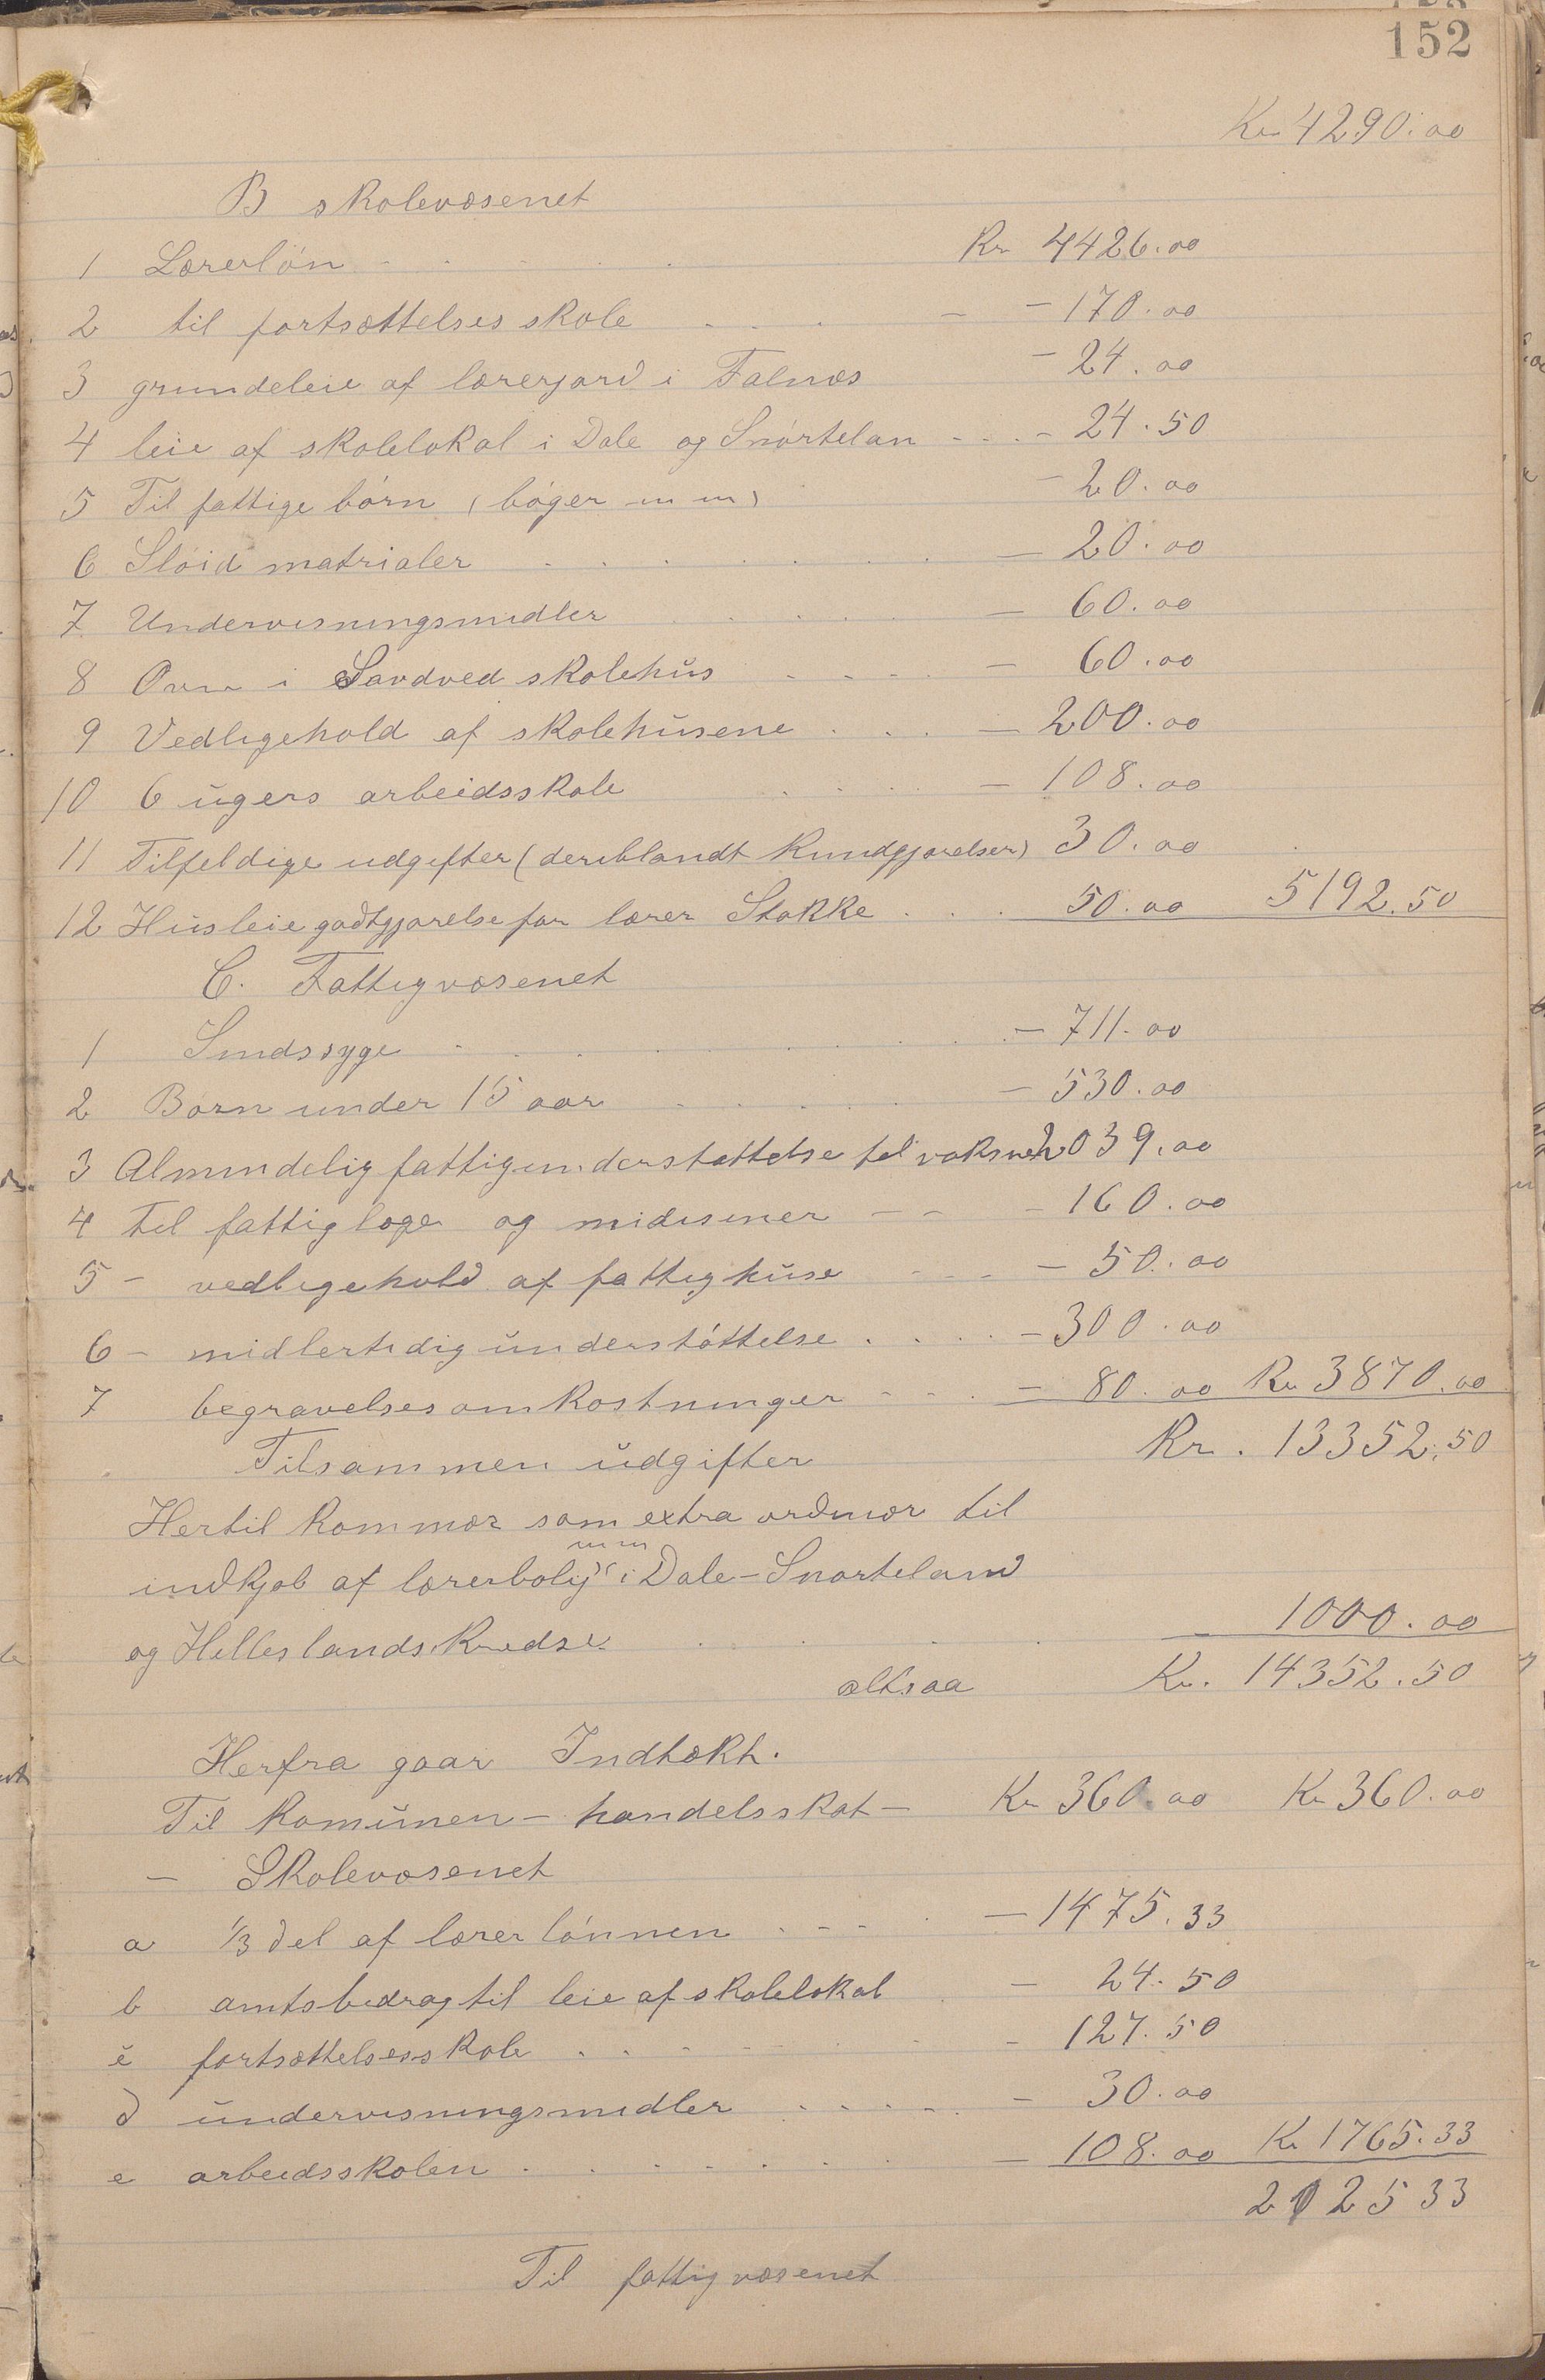 152
Kr 4290.00
B skolevæsenet
1 Lærerløn - - - - - Kr 4426.00
2 til fortsættelses skole . . . — 170.00
3 grundeleie af lærerjord i Falnæs — 24.00
4 leie af skolelokal i Dale og Snørtelan - - . - 24.50
5 Til fattige børn (bøger m m) — 20.00
6 Sløid matrialer . . . . . . — 20.00
7 Undervisningsmidler . . . . — 60.00
8 Ovn i Sandved skolehus . . . . — 60.00
9 Vedligehold af skolehusene . . . — 200.00
10 6 ugers arbeidsskole . . . . — 108.00
11 Tilfeldige udgifter (deriblandt Kundgjørelser) 30.00
12 Husleiegodtgjørelse for lærer Stokke . . . 50.00 5192.50
C. Fattigvæsenet
1 Sindssyge . . . . . . . — 711.00
2 Børn under 15 aar . . . . . — 530.00
3 Almindelig fattigunderstøttelse til voksne 2039.00
4 til fattiglæge og midisiner — — - 160.00
5 - vedligehold af fattighuse - - - — 50.00
6 - midlertidig understøttelse . . . . — 300.00
7 begravelsesomkostninger - - - . — 80.00 Kr 3870.00
Tilsammen udgifter Kr. 13352.50
Hertil kommer som extra ordinær til
m m
indkjøb af lærerbolig i Dale-Snørteland
og Hellelandskredse . . . . . 1000.00
altsaa Kr. 14352.50
Herfra gaar Indtækt.
Til Komunen - handelsskat - Kr 360.00 Kr 360.00
— Skolevæsenet
a 1/3 del af lærerlønnen . - - - . — 1475.33
b amtsbidrag til leie af skolelokal . — 24.50
c fortsættelsesskole . . - - — 127.50
d undervisningsmidler . . . . . — 30.00
e arbeidsskolen . . . . . . . — 108.00 Kr 1765.33
2125 33
Til fattigvæsenet